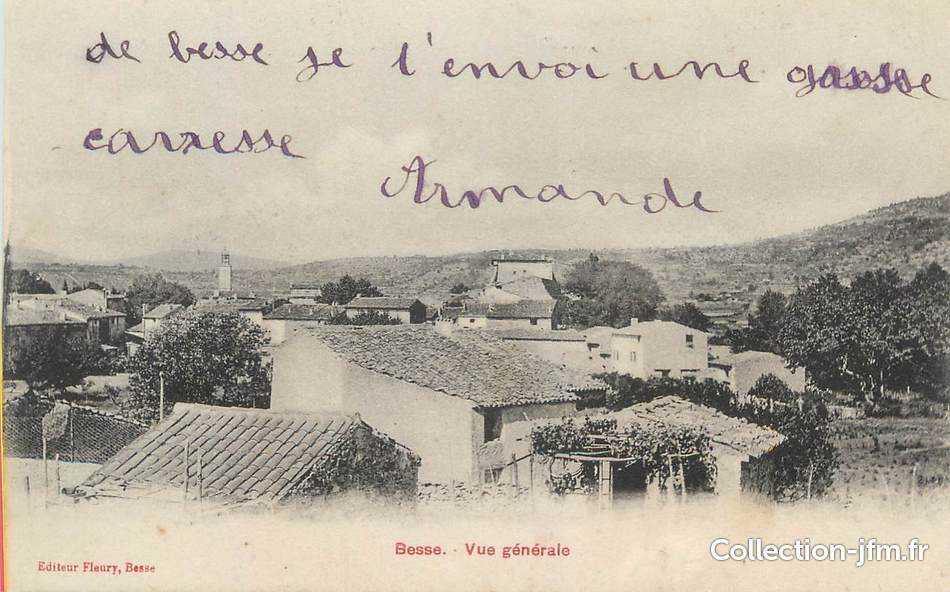 de besse je t'envoi une grosse
carresse
Armande
Besse. - Vue générale
Editeur Fleury, Besse
Collection-jfm.fr